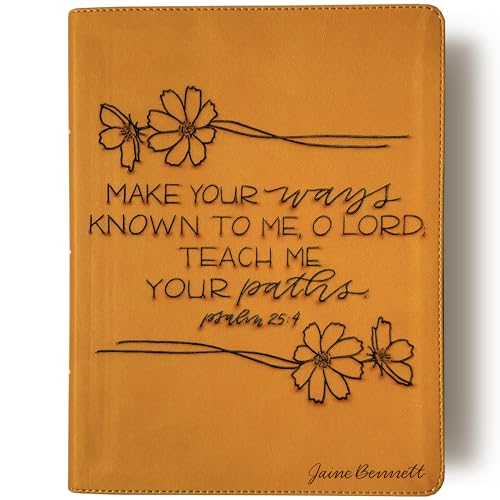 MAKE YOUR ways
KNOWN TO ME, O LORD;
TEACH ME
YOUR paths
psalm 25:4
Jaine Bennett